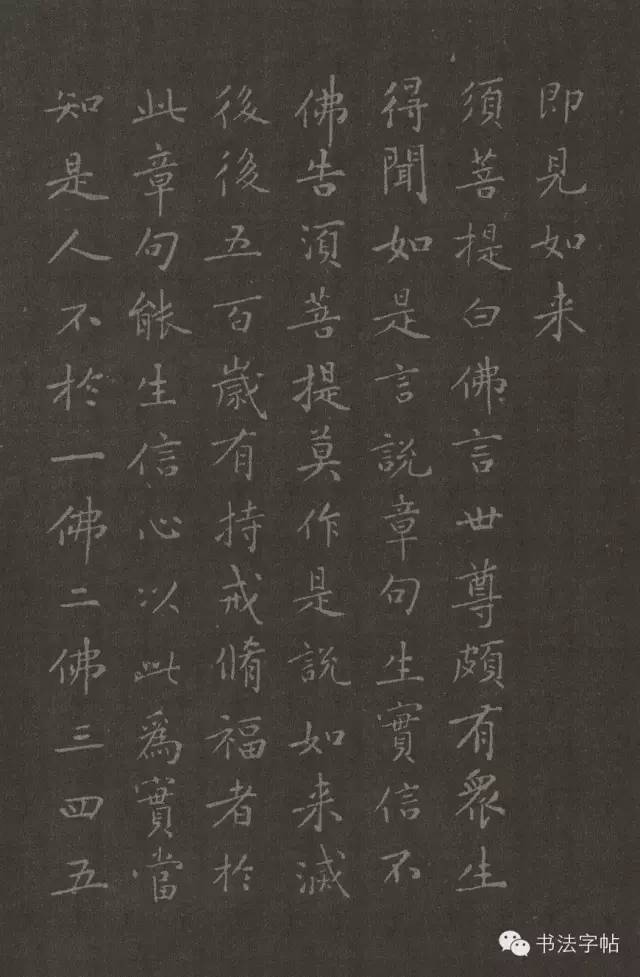 即見如来
須菩提白佛言世尊頗有眾生
得聞如是言說章句生實信不
佛告須菩提莫作是說如来滅
後後五百歲有持戒脩福者於
此章句能生信心以此為實當
知是人不於一佛二佛三四五
书法字帖